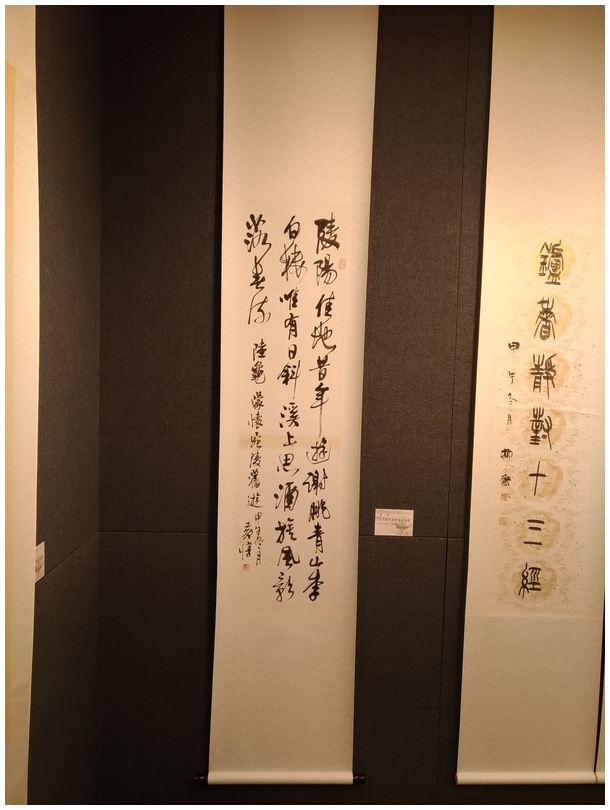 陵陽佳地昔年遊謝朓青山李
白樓唯有日斜溪上思酒旗風影
落春流
陸龜蒙懷宛陵舊遊
甲午冬月
鑪靜對十三經
甲午冬月